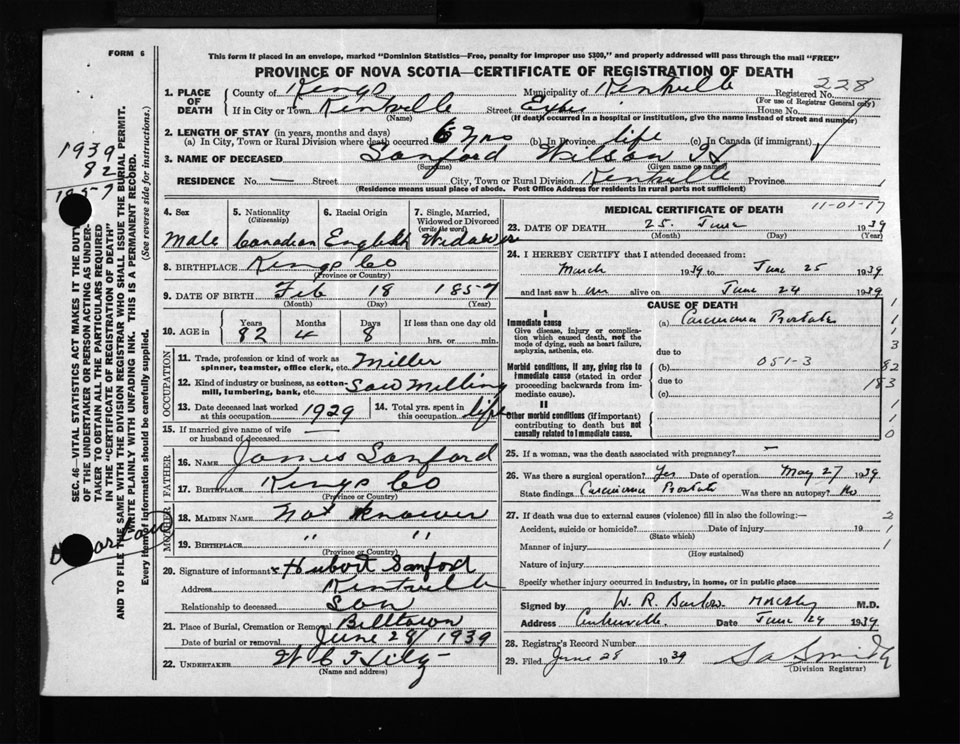 FORM 6
This form if placed in an envelope, marked "Dominion Statistics—Free, penalty for improper use $300," and properly addressed will pass through the mail "FREE"
PROVINCE OF NOVA SCOTIA—CERTIFICATE OF REGISTRATION OF DEATH
228
1. PLACE OF DEATH County of Kings Municipality of Kentville Registered No.
(For use of Registrar General only)
If in City or Town Kentville Street House No.
(Name) (If death occurred in a hospital or institution, give the name instead of street and number)
2. LENGTH OF STAY (in years, months and days)
(a) In City, Town or Rural Division where death occurred 6 yrs (b) In Province life (c) In Canada (if immigrant)
3. NAME OF DECEASED Sanford Wilson
(Surname) (Given name or names)
RESIDENCE No. — Street City, Town or Rural Division Kentville Province
(Residence means usual place of abode. Post Office Address for residents in rural parts not sufficient)
1939
82
1857
SEC. 46—VITAL STATISTICS ACT MAKES IT THE DUTY
OF THE UNDERTAKER OR PERSON ACTING AS UNDER-
TAKER TO OBTAIN ALL THE PARTICULARS REQUIRED
IN THE "CERTIFICATE OF REGISTRATION OF DEATH"
AND TO FILE THE SAME WITH THE DIVISION REGISTRAR WHO SHALL ISSUE THE BURIAL PERMIT.
WRITE PLAINLY WITH UNFADING INK. THIS IS A PERMANENT RECORD.
Every item of information should be carefully supplied. (See reverse side for instructions.)
4. Sex 5. Nationality (Citizenship) 6. Racial Origin 7. Single, Married, Widowed or Divorced (write the word)
Male Canadian English Widower
8. BIRTHPLACE Kings Co
(Province or Country)
9. DATE OF BIRTH Feb 18 1857
(Month) (Day) (Year)
10. AGE in Years Months Days If less than one day old
82 4 8 hrs. or min.
OCCUPATION
11. Trade, profession or kind of work as spinner, teamster, office clerk, etc. Miller
12. Kind of industry or business, as cotton-mill, lumbering, bank, etc. Saw Milling
13. Date deceased last worked at this occupation 1929 14. Total yrs. spent in this occupation life
15. If married give name of wife or husband of deceased —
FATHER
16. NAME James Sanford
17. BIRTHPLACE Kings Co
(Province or Country)
MOTHER
18. MAIDEN NAME Not known
19. BIRTHPLACE " "
(Province or Country)
20. Signature of informant Hubert Sanford
Address Kentville
Relationship to deceased Son
21. Place of Burial, Cremation or Removal Billtown
Date of burial or removal June 29 1939
22. UNDERTAKER
(Name and address)
MEDICAL CERTIFICATE OF DEATH 11-01-17
23. DATE OF DEATH 25 June 1939
(Month) (Day) (Year)
24. I HEREBY CERTIFY that I attended deceased from:
March 1939 to June 25 1939
and last saw him alive on June 24 1939
CAUSE OF DEATH
I
Immediate cause (a) Carcinoma Prostate
Give disease, injury or complication which caused death, not the mode of dying, such as heart failure, asphyxia, asthenia, etc.
due to
Morbid conditions, if any, giving rise to immediate cause (stated in order proceeding backwards from immediate cause). (b) 051-3
due to
(c)
II
Other morbid conditions (if important) contributing to death but not causally related to immediate cause.
1
1
3
82
183
1
1
0
25. If a woman, was the death associated with pregnancy? —
26. Was there a surgical operation? Yes Date of operation May 27 1939
State findings Carcinoma Prostate Was there an autopsy? No
27. If death was due to external causes (violence) fill in also the following:— 2
Accident, suicide or homicide? Date of injury 19 1
(State which)
Manner of injury 1
(How sustained)
Nature of injury
Specify whether injury occurred in industry, in home, or in public place
Signed by W. R. M.D.
Address Centreville Date June 29 1939
28. Registrar's Record Number
29. Filed June 28 1939
(Division Registrar)